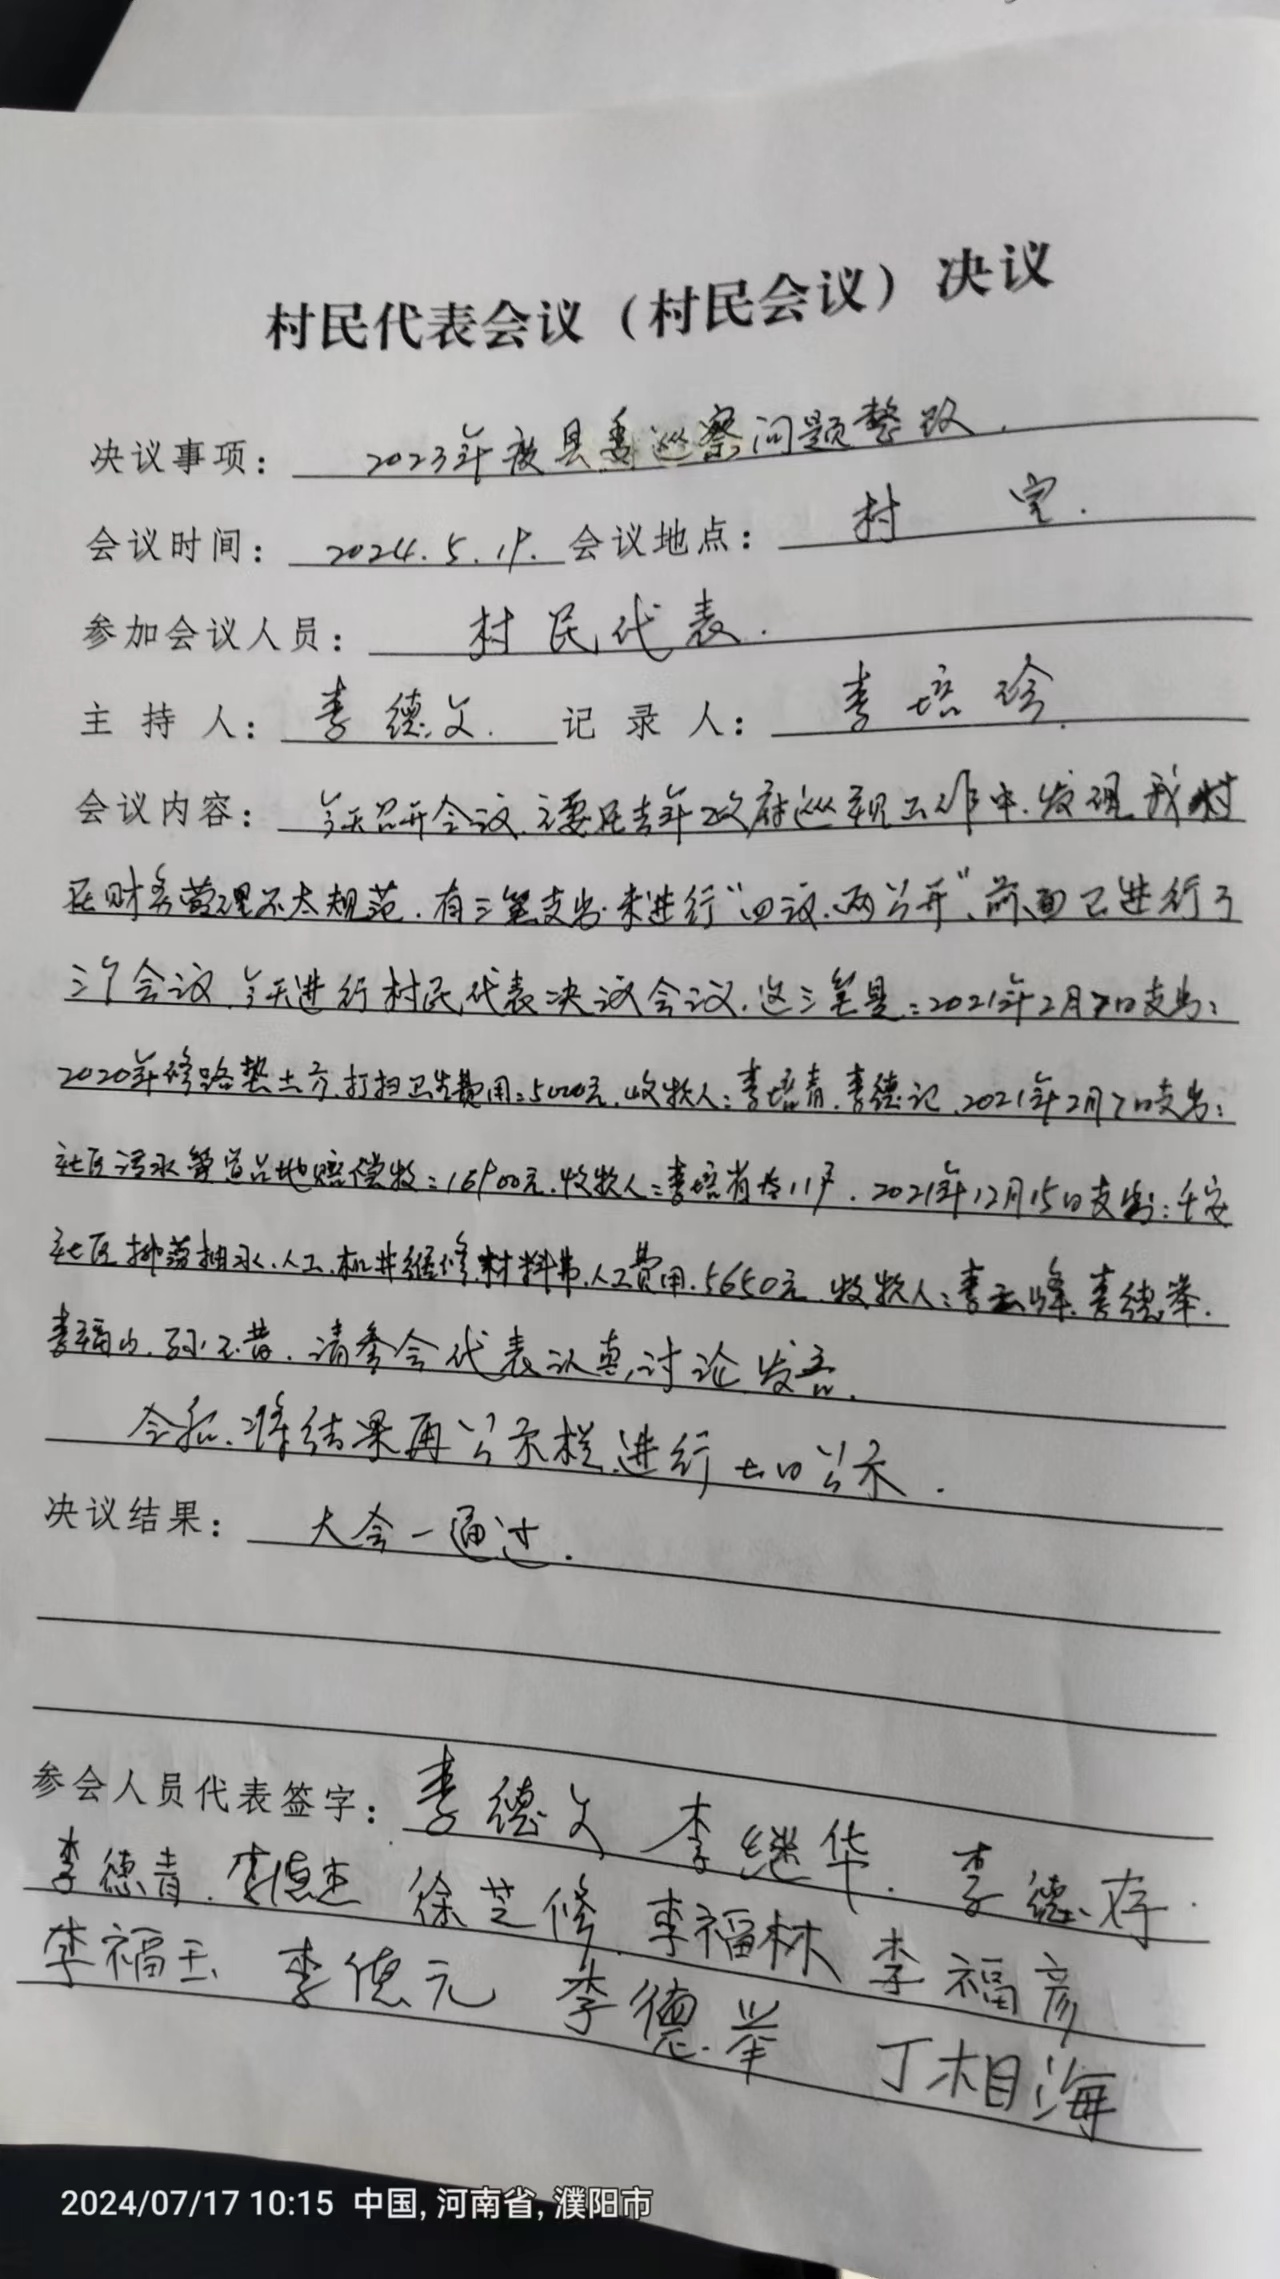 村民代表会议（村民会议）决议
决议事项： 2023年度县委巡察问题整改.
会议时间： 2024.5.19. 会议地点： 村室.
参加会议人员： 村民代表.
主持人： 李德文. 记录人： 李培珍.
会议内容： 今天召开会议,主要是去年政府巡视工作中.发现我村
在财务管理不太规范.有三笔支出.未进行“四议.两公开”、前面已进行了
三个会议.今天进行村民代表决议会议.这三笔是:2021年2月7日支出:
2020年修路垫土方.打扫卫生费用:5000元.收款人:李培青.李德记.2021年2月7日支出:
社区污水管道占地赔偿款:16900元.收款人:李培省等11户.2021年12月15日支出:
社区排涝抽水.人工.机井维修.材料费.人工费用.5650元.收款人:李云峰.李德举.
李福山.孙.请参会代表认真讨论发言.
会后.将结果再公示栏进行七日公示.
决议结果： 大会一通过.
参会人员代表签字： 李德文 李继华. 李德存.
李德青. 李德杰 徐芝修 李福林 李福彦
李福玉 李德元 李德举 丁相海
2024/07/17 10:15 中国, 河南省, 濮阳市